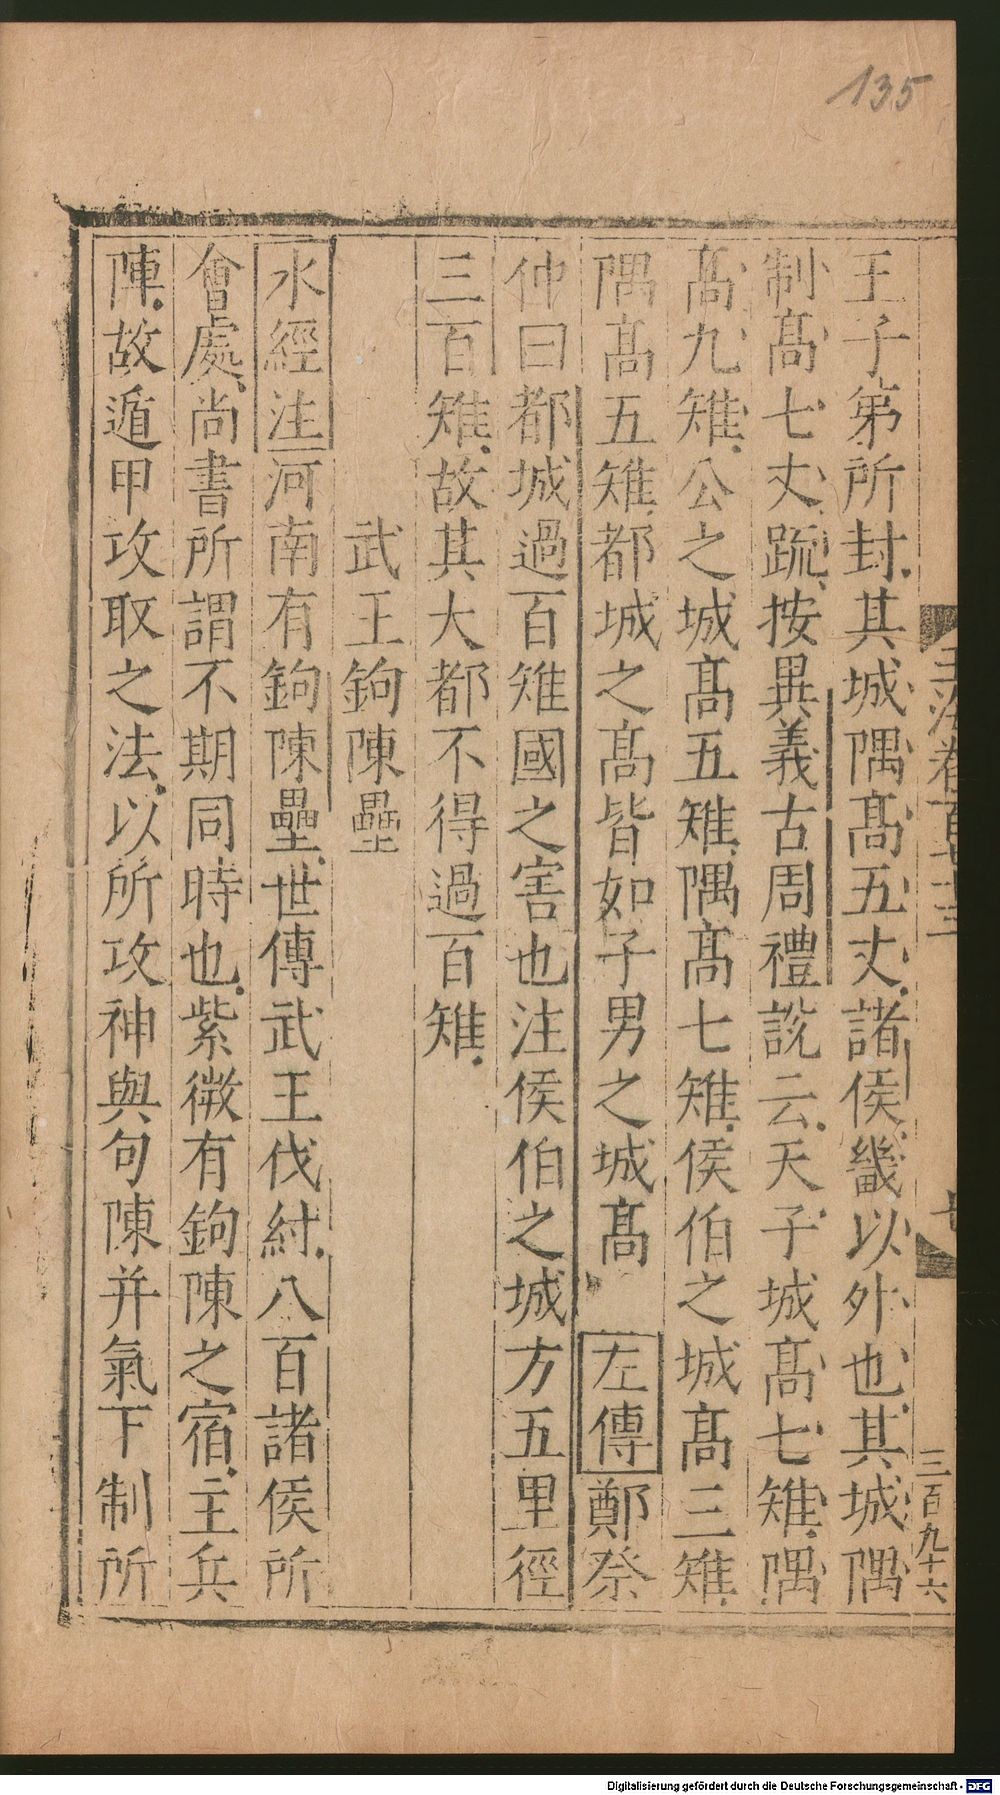 135
王子第所封其城隅髙五丈諸侯畿以外也其城隅
制髙七丈䟽按異義古周禮說云天子城髙七雉隅
髙九雉公之城髙五雉隅髙七雉侯伯之城髙三雉
隅髙五雉都城之髙皆如子男之城髙 左傳鄭祭
仲曰都城過百雉國之害也注侯伯之城方五里徑
三百雉故其大都不得過百雉
武王鉤陳壘
水經注河南有鉤陳壘世傳武王伐紂八百諸侯所
會處尚書所謂不期同時也紫微有鉤陳之宿主兵
陣故遁甲攻取之法以所攻神與句陳并氣下制所
三百九十六
Digitalisierung gefördert durch die Deutsche Forschungsgemeinschaft - DFG